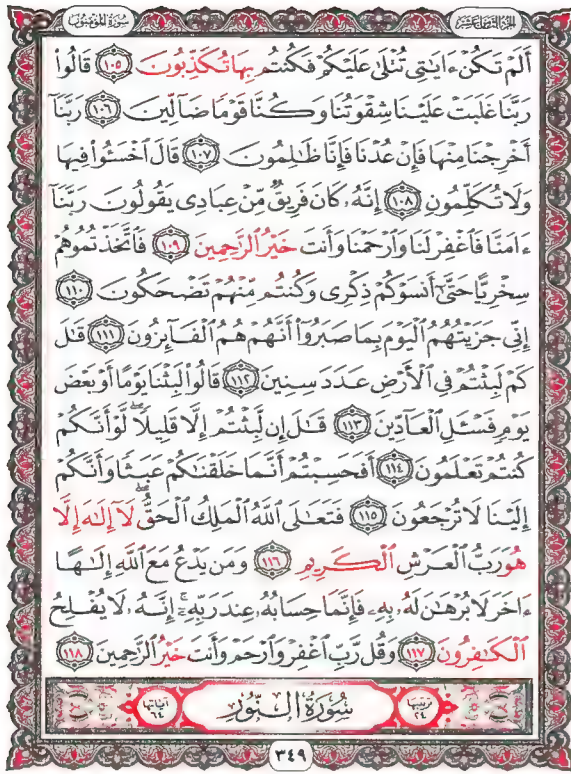 الجزء الثامن عشر
سورة المؤمنون
أَلَمْ تَكُنْ ءَايَٰتِى تُتْلَىٰ عَلَيْكُمْ فَكُنتُم بِهَا تُكَذِّبُونَ ١٠٥ قَالُوا۟
رَبَّنَا غَلَبَتْ عَلَيْنَا شِقْوَتُنَا وَكُنَّا قَوْمًا ضَآلِّينَ ١٠٦ رَبَّنَآ
أَخْرِجْنَا مِنْهَا فَإِنْ عُدْنَا فَإِنَّا ظَٰلِمُونَ ١٠٧ قَالَ ٱخْسَـُٔوا۟ فِيهَا
وَلَا تُكَلِّمُونِ ١٠٨ إِنَّهُۥ كَانَ فَرِيقٌ مِّنْ عِبَادِى يَقُولُونَ رَبَّنَآ
ءَامَنَّا فَٱغْفِرْ لَنَا وَٱرْحَمْنَا وَأَنتَ خَيْرُ ٱلرَّٰحِمِينَ ١٠٩ فَٱتَّخَذْتُمُوهُمْ
سِخْرِيًّا حَتَّىٰٓ أَنسَوْكُمْ ذِكْرِى وَكُنتُم مِّنْهُمْ تَضْحَكُونَ ١١٠
إِنِّى جَزَيْتُهُمُ ٱلْيَوْمَ بِمَا صَبَرُوٓا۟ أَنَّهُمْ هُمُ ٱلْفَآئِزُونَ ١١١ قَٰلَ
كَمْ لَبِثْتُمْ فِى ٱلْأَرْضِ عَدَدَ سِنِينَ ١١٢ قَالُوا۟ لَبِثْنَا يَوْمًا أَوْ بَعْضَ
يَوْمٍ فَسْـَٔلِ ٱلْعَآدِّينَ ١١٣ قَٰلَ إِن لَّبِثْتُمْ إِلَّا قَلِيلًا ۖ لَّوْ أَنَّكُمْ
كُنتُمْ تَعْلَمُونَ ١١٤ أَفَحَسِبْتُمْ أَنَّمَا خَلَقْنَٰكُمْ عَبَثًا وَأَنَّكُمْ
إِلَيْنَا لَا تُرْجَعُونَ ١١٥ فَتَعَٰلَى ٱللَّهُ ٱلْمَلِكُ ٱلْحَقُّ ۖ لَآ إِلَٰهَ إِلَّا
هُوَ رَبُّ ٱلْعَرْشِ ٱلْكَرِيمِ ١١٦ وَمَن يَدْعُ مَعَ ٱللَّهِ إِلَٰهًا
ءَاخَرَ لَا بُرْهَٰنَ لَهُۥ بِهِۦ فَإِنَّمَا حِسَابُهُۥ عِندَ رَبِّهِۦٓ ۚ إِنَّهُۥ لَا يُفْلِحُ
ٱلْكَٰفِرُونَ ١١٧ وَقُل رَّبِّ ٱغْفِرْ وَٱرْحَمْ وَأَنتَ خَيْرُ ٱلرَّٰحِمِينَ ١١٨
ترتيبها ٢٤
سُورَةُ النُّورِ
آياتها ٦٤
٣٤٩